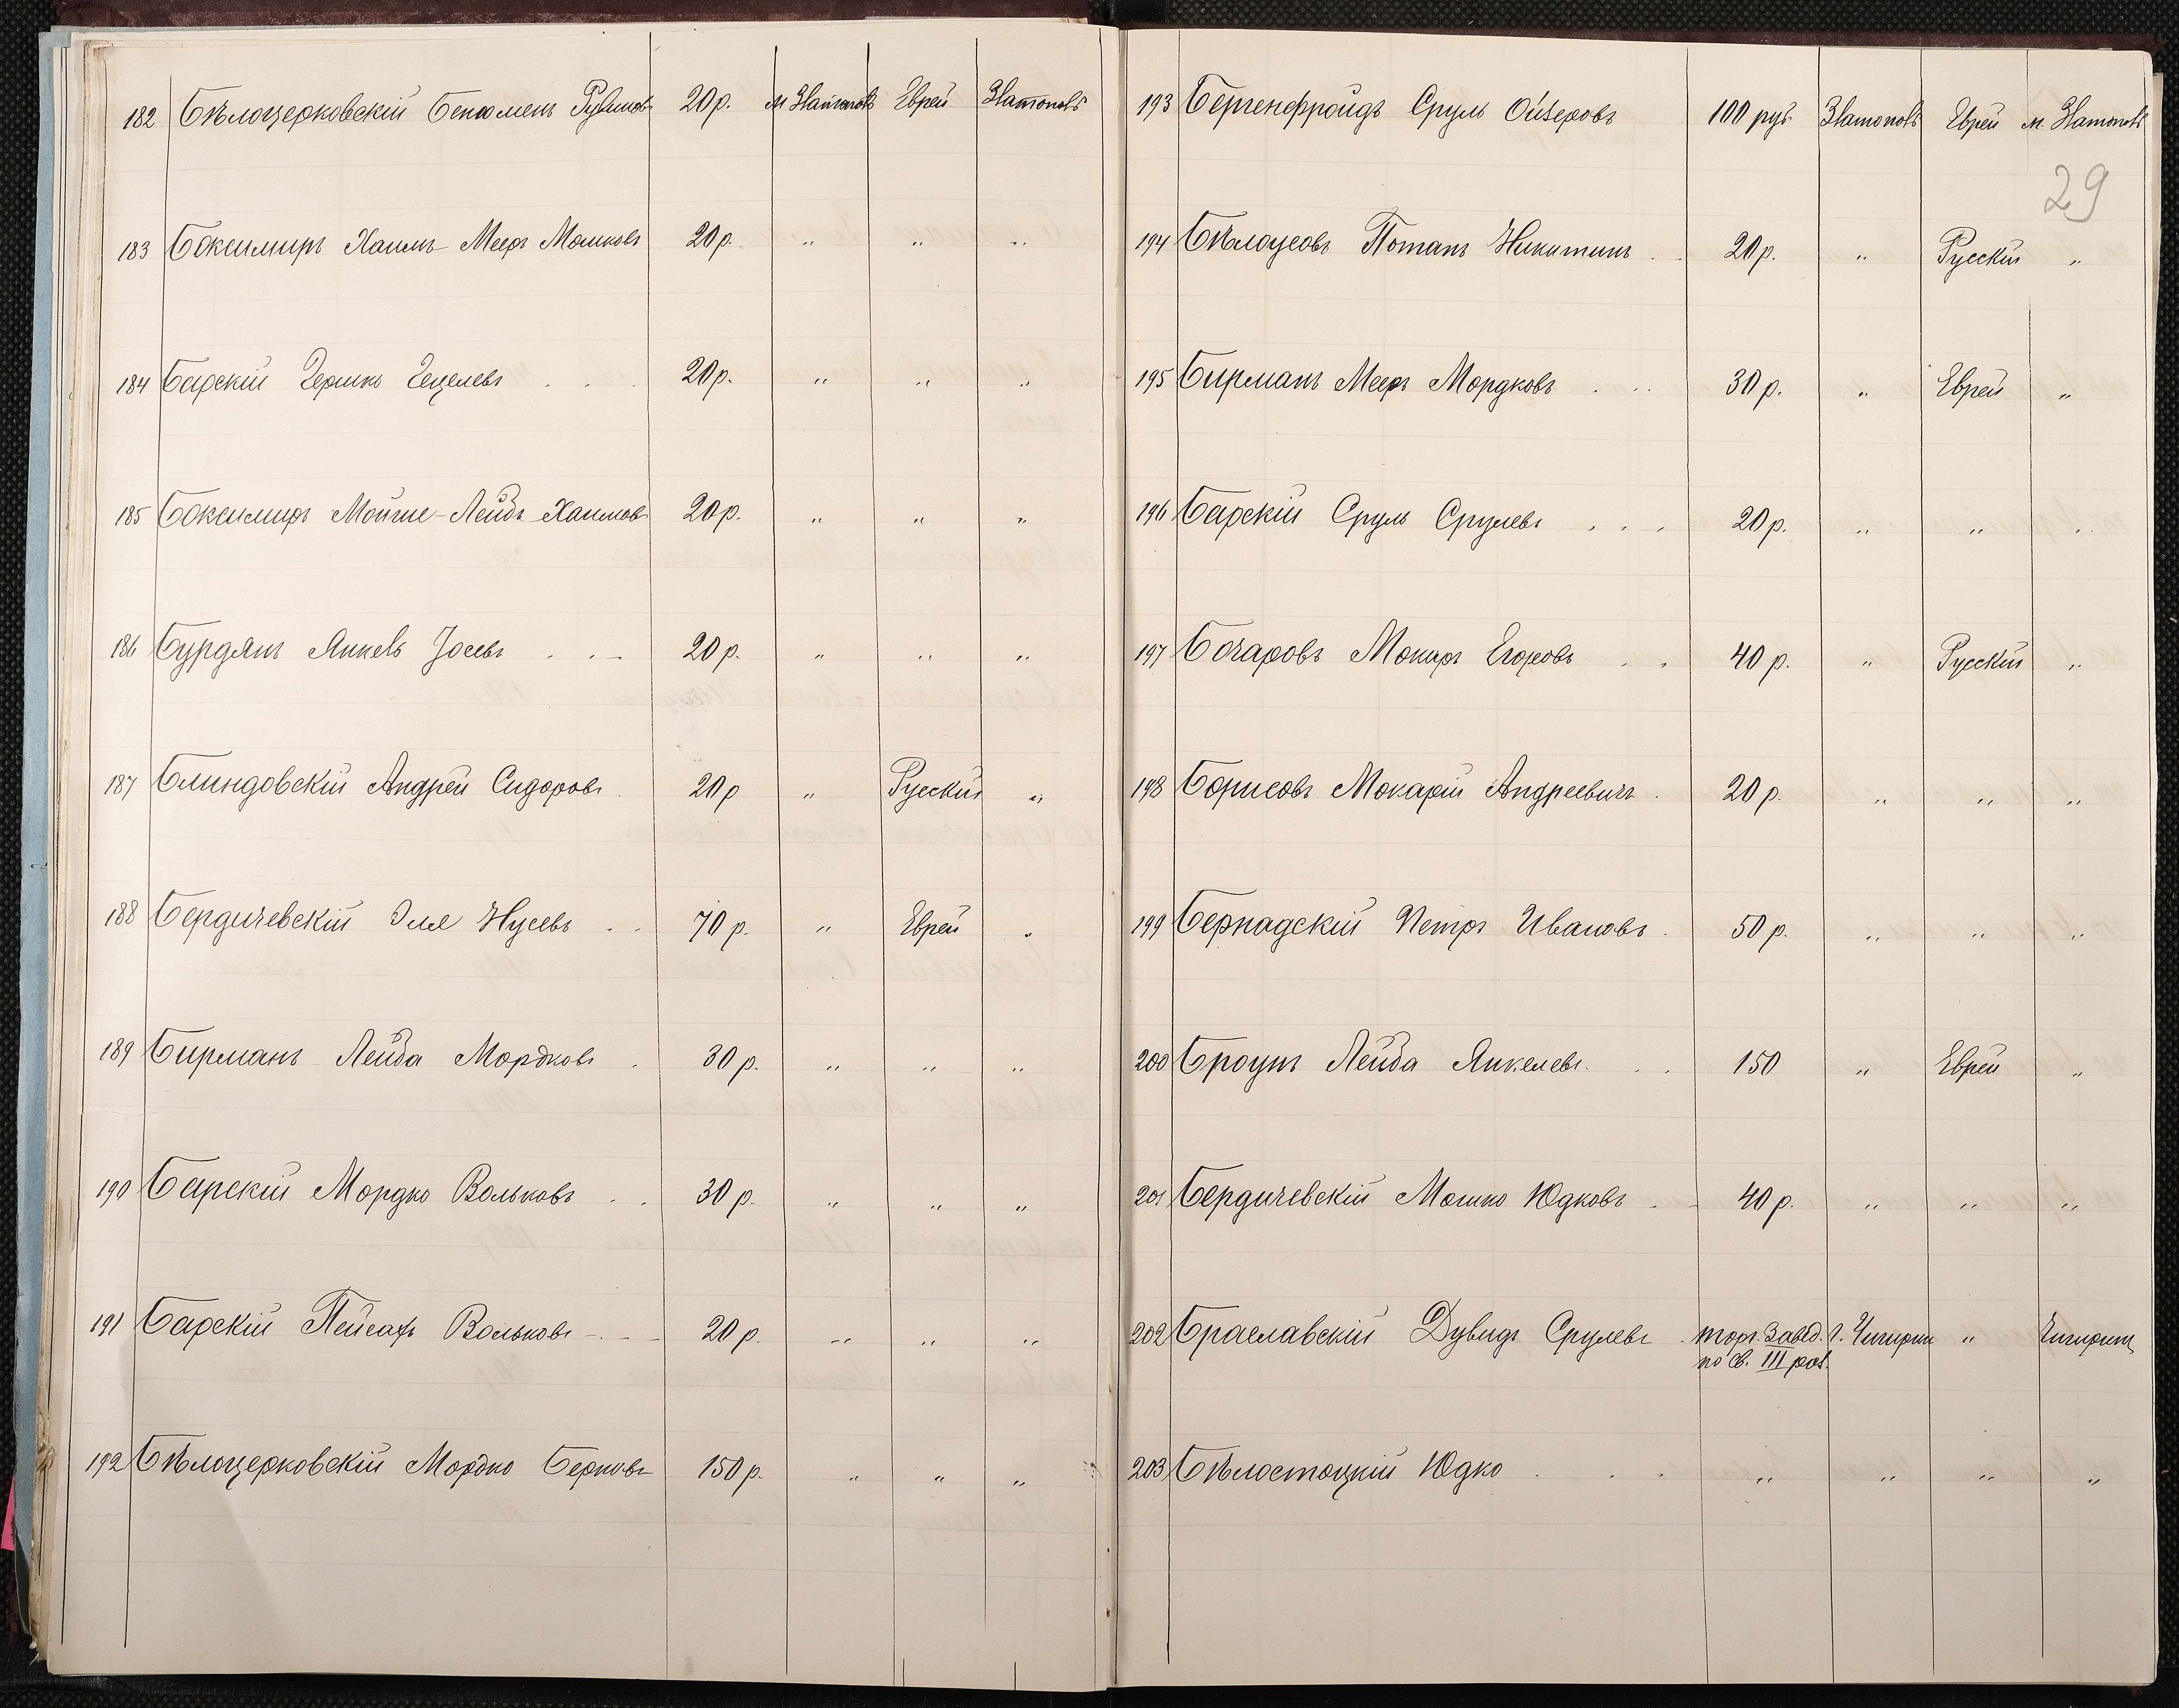 182 Бѣлоцерковскій Бенюменъ Рувинов 20р. м Златополь Еврей Златополь
183 Боксимиръ Хаимъ-Меер Мошковъ 20р. " " "
184 Барскій Гершко Гецелевъ . . . 20р. " " "
185 Боксимиръ Мойше-Лейбъ Хаимовъ 20р. " " "
186 Бурдянъ Янкель Іосевъ . . - 20р. " " "
187 Блиндовскій Андрей Сидоровъ . 20р " Русскій "
188 Бердичевскій Эля Нусевъ . . 70р. " Еврей "
189 Бирманъ Лейба Мордковъ . 30р. " " "
190 Барскій Мордко Вольковъ . . 30р. " " "
191 Барскій Пейсахъ Вольковъ - . - 20р. " " "
192 Бѣлоцерковскій Мордко Берковъ 150р. " " "
193 Бергенфройдъ Сруль Ойзеровъ 100 руб Златополь Еврей м. Златополь
29
194 Бѣлоусовъ Потапъ Никитинъ . . 20р. " Русскій "
195 Бирманъ Меер Мордковъ . . . 30р. " Еврей "
196 Барскій Сруль Срулевъ . . . 20р. " " "
197 Бочаровъ Мокаръ Егоровъ . . 40р. " Русскій "
198 Борисовъ Мокарій Андреевичъ . 20р. " " "
199 Бернадскій Петръ Ивановъ . 50р. " " "
200 Броунъ Лейба Янкелевъ. . . 150 " Еврей "
201 Бердичевскій Мошко Юдковъ . - 40р. " " "
202 Браславскій Дувидъ Срулевъ . торг. завед. г. Чигирин " Чигирин
по св. III раз.
203 Бѣлостоцкій Юдко . . . " " " "